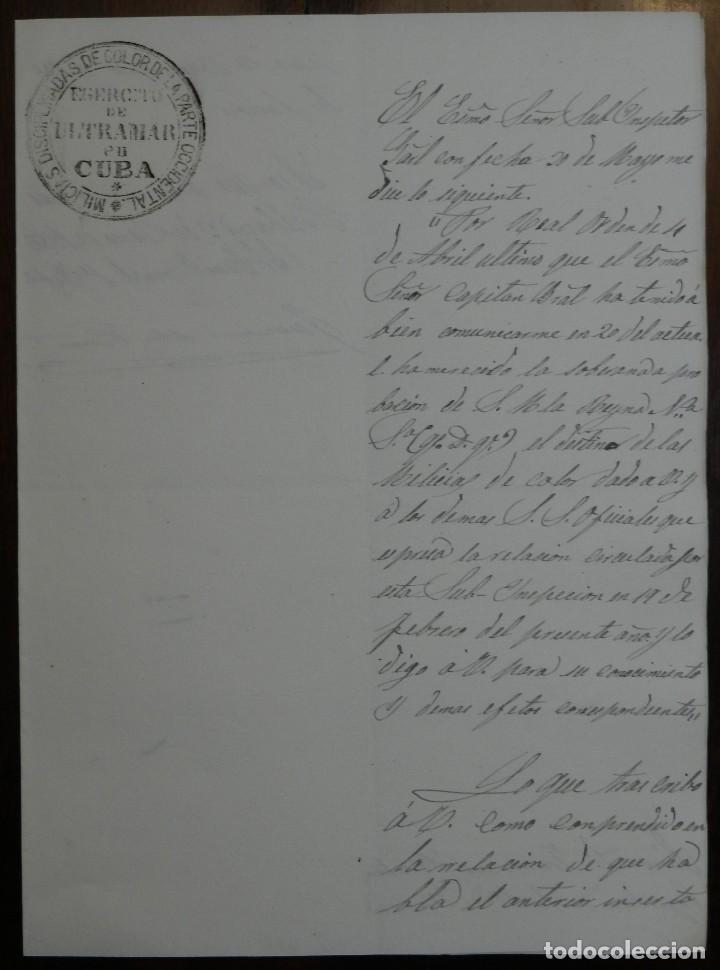 MILICIAS DISCIPLINADAS DE COLOR DE LA PARTE OCCIDENTAL.
EGERCITO
DE
ULTRAMAR
en
CUBA
El Esmo Señor Sub Inspetor
Gral con fecha 20 de Mayo me
dice lo siguiente.
"Por Real Orden de 4
de Abril ultimo que el Esmo
Señor Capitan Gral ha tenido á
bien comunicarme en 20 del actua
l. ha merecido la soberana a pro
bacion de S. M. la Reyna N.a
S.a (q. D. g.e) el destino de las
Milicias de color dado a V. y
á los demas S. S. Oficiales que
espresa la relacion circulada por
esta Sub-Ynspecion en 19 de
Febrero del presente año. y lo
digo á V. para su conocimiento
y demas efetos correspondientes"
Lo que trascribo
á V. como conprendido en
la rrelacion de que ha
bla el anterior inserto
todocoleccion.net